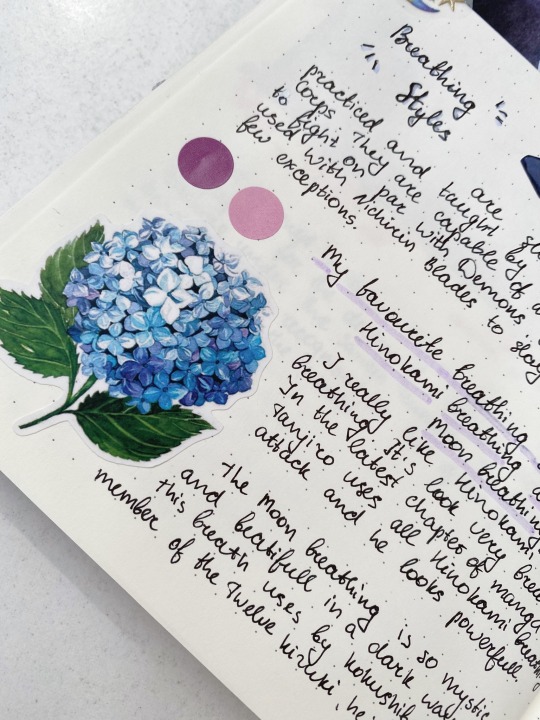 Breathing
Styles
are
practiced and taught by
Corps. They are capable of
to fight on par with Demons
used with Nichirin Blades to slay
few exceptions.
My favourite breathing
Hinokami breathing
Moon breathing
I really like Hinokami
breathing. It's look very
In the latest chapter of manga
Tanjiro uses all Hinokami
attack and he looks powerfull
The moon breathing is so
and beatifull in a dark
this breath uses by
member of the Twelve Kizuki, he